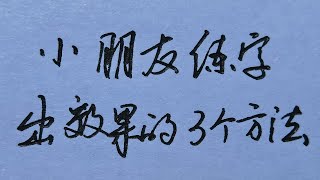 小朋友练字
出效果的3个方法